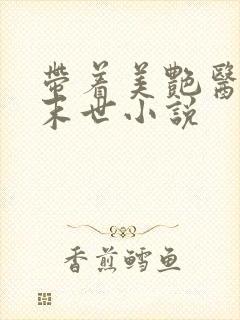 帶着美艷醫
末世小説
香煎鱈魚